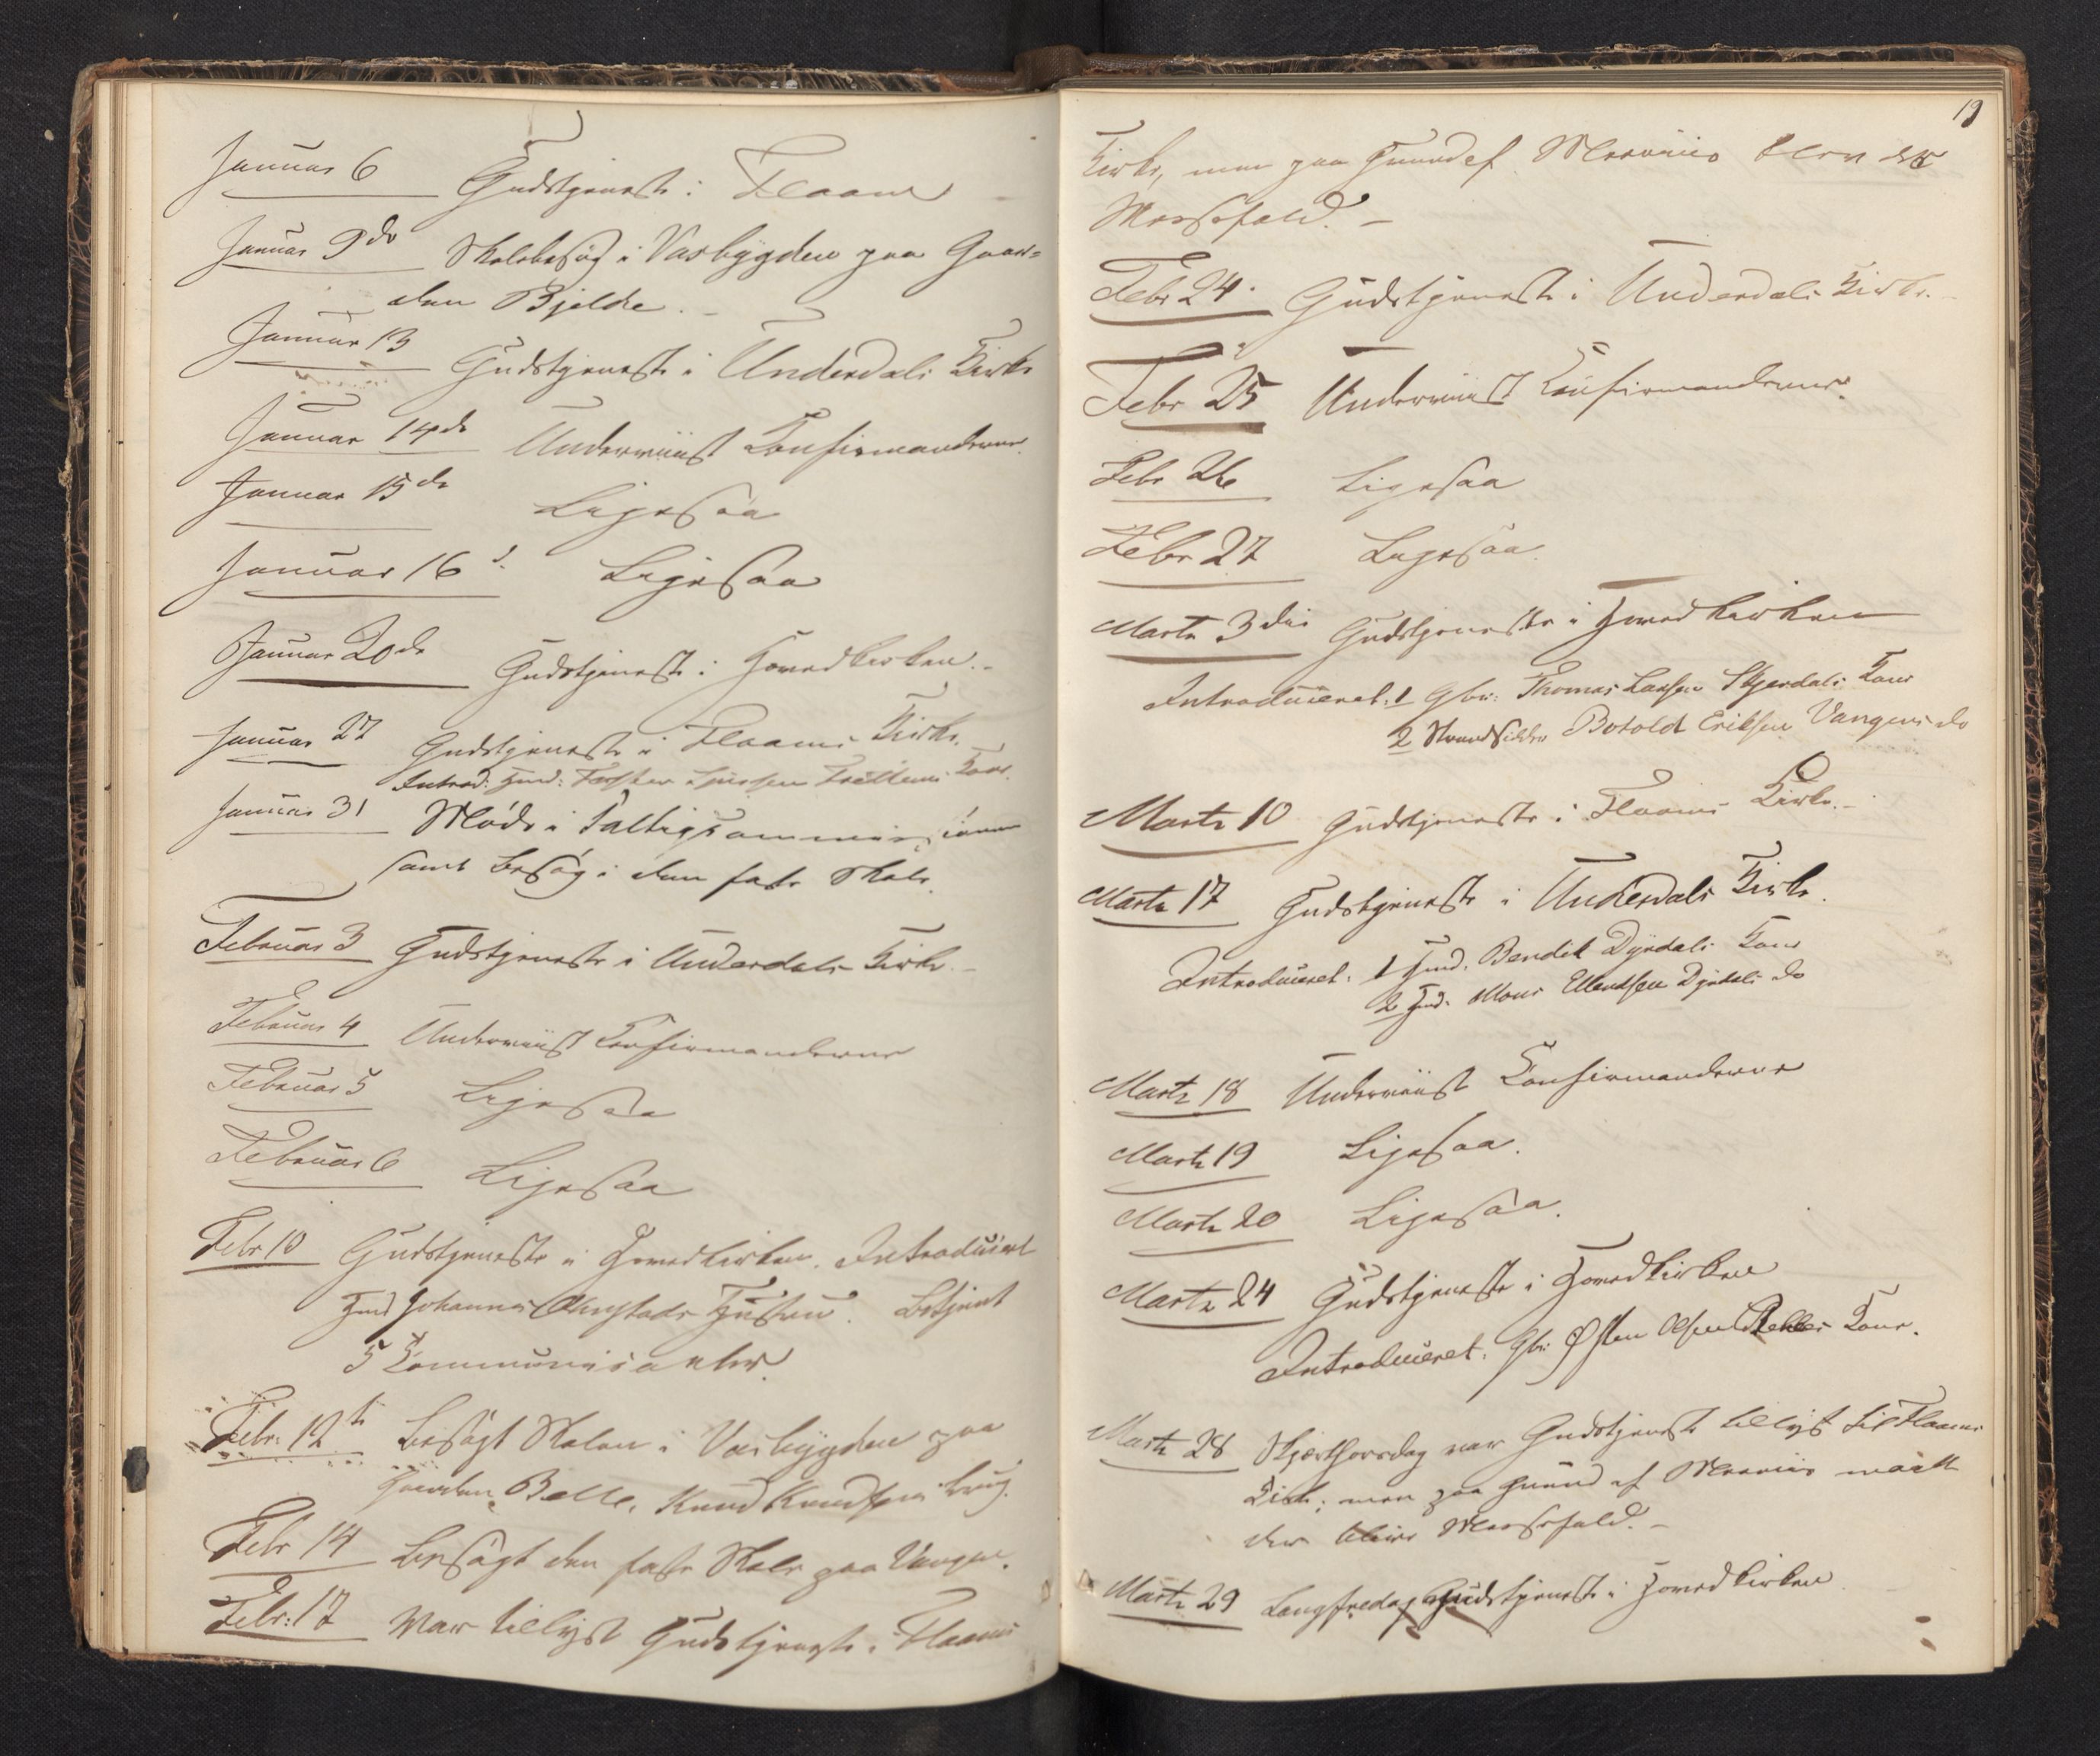 Januar 6 Gudstjeneste i Flaam
Januar 9de Skolebesøg i Vasbygden paa Gaar-
den Bjelde.
Januar 13 Gudstjeneste i Underdals Kirke
Januar 14de Underviist Confirmanderne
Januar 15de Ligesaa
Januar 16d. Ligesaa
Januar 20de Gudstjeneste i Hovedkirken.
Januar 27 Gudstjeneste i Flaams Kirke.
Introd: Hmd: Kone.
Januar 31 Møde i Fattigcommissionen
samt besøg i den faste Skole.
Februar 3 Gudstjeneste i Underdals Kirke.
Februar 4 Underviist Confirmanderne
Februar 5 Ligesaa
Februar 6 Ligesaa
Febr 10 Gudstjeneste i Hovedkirken. Introduceret
Hmd Johannes Hustru. Betjent
5 Communicanter.
Febr: 12te Besøgt Skolen i Vasbygden paa
Gaarden Belle, Knud Knudsens brug.
Febr 14 Besøgt den faste Skole paa Vangen.
Febr: 17 Var tillyst Gudstjeneste i Flaams
19
Kirke, men paa Grund af Meenniis blev det
Messefald.
Febr 24. Gudstjeneste i Underdals Kirke.
Febr 25 Underviist Confirmanderne.
Febr 26 Ligesaa
Febr 27 Ligesaa.
Marts 3die Gudstjeneste i Hovedkirken
Introduceret: 1 Gbr: Thomas Larsen Skjerdals Kone
2 Strandsidder Botold Eriksen Vangens do
Marts 10 Gudstjeneste i Flaams Kirke.
Marts 17 Gudstjeneste i Underdals Kirke.
Introduceret: 1 Hmd. Bendik Dyrdals Kone
2 Hmd. Mons Ellendsen Dyrdals do
Marts 18 Underviist Confirmanderne
Marts 19 Ligesaa.
Marts 20 Ligesaa.
Marts 24 Gudstjeneste i Hovedkirken
Introduceret: Gbr: Østen Olsen Kone.
Marts 28 Skjærthorsdag var Gudstjeneste tillyst til Flaams
Kirke; men paa Grund af Meenniis maatte
der blive Messefald.
Marts 29 Langfredag Gudstjeneste i Hovedkirken